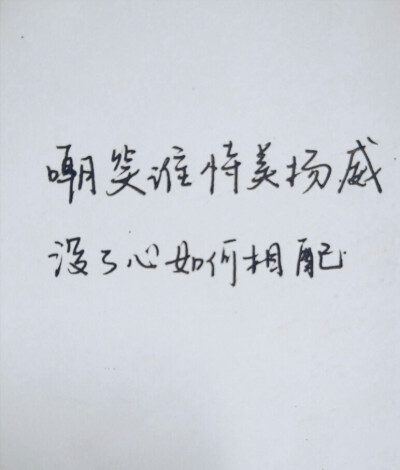 嘲笑谁恃美扬威
没了心如何相配